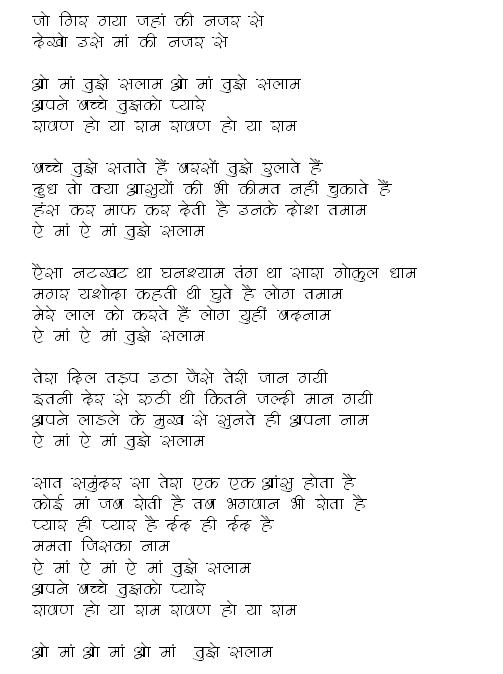 जो गिर गया जहां की नजर से
देखो उसे मां की नजर से

ओ मां तुझे सलाम ओ मां तुझे सलाम
अपने बच्चे तुझको प्यारे
रावण हो या राम रावण हो या राम

बच्चे तुझे सताते हैं बरसों तुझे रुलाते हैं
दुध तो क्या आसुयों की भी कीमत नहीं चुकाते हैं
हंस कर माफ कर देती है उनके दोश तमाम
ऐ मां ऐ मां तुझे सलाम

ऐसा नटखट था घनश्याम तंग था सारा गोकुल धाम
मगर यशोदा कहती थी घुते है लोग तमाम
मेरे लाल को करते हैं लोग युहीं बदनाम
ऐ मां ऐ मां तुझे सलाम

तेरा दिल तड़प उठा जैसे तेरी जान गयी
इतनी देर से रुठी थी कितनी जल्दी मान गयी
अपने लाडले के मुख से सुनते ही अपना नाम
ऐ मां ऐ मां तुझे सलाम

सात समुंदर सा तेरा एक एक आंसु होता है
कोई मां जब रोती है तब भगवान भी रोता है
प्यार ही प्यार है र्दद ही र्दद है
ममता जिसका नाम
ऐ मां ऐ मां ऐ मां तुझे सलाम
अपने बच्चे तुझको प्यारे
रावण हो या राम रावण हो या राम

ओ मां ओ मां ओ मां तुझे सलाम